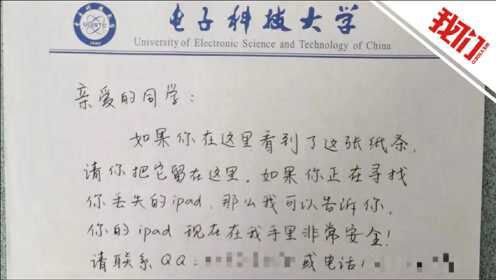 电子科技大学
University of Electronic Science and Technology of China
我们
亲爱的同学：
如果你在这里看到了这张纸条，
请你把它留在这里。如果你正在寻找
你丢失的ipad，那么我可以告诉你，
你的ipad 现在在我手里非常安全！
请联系QQ：
或电话：